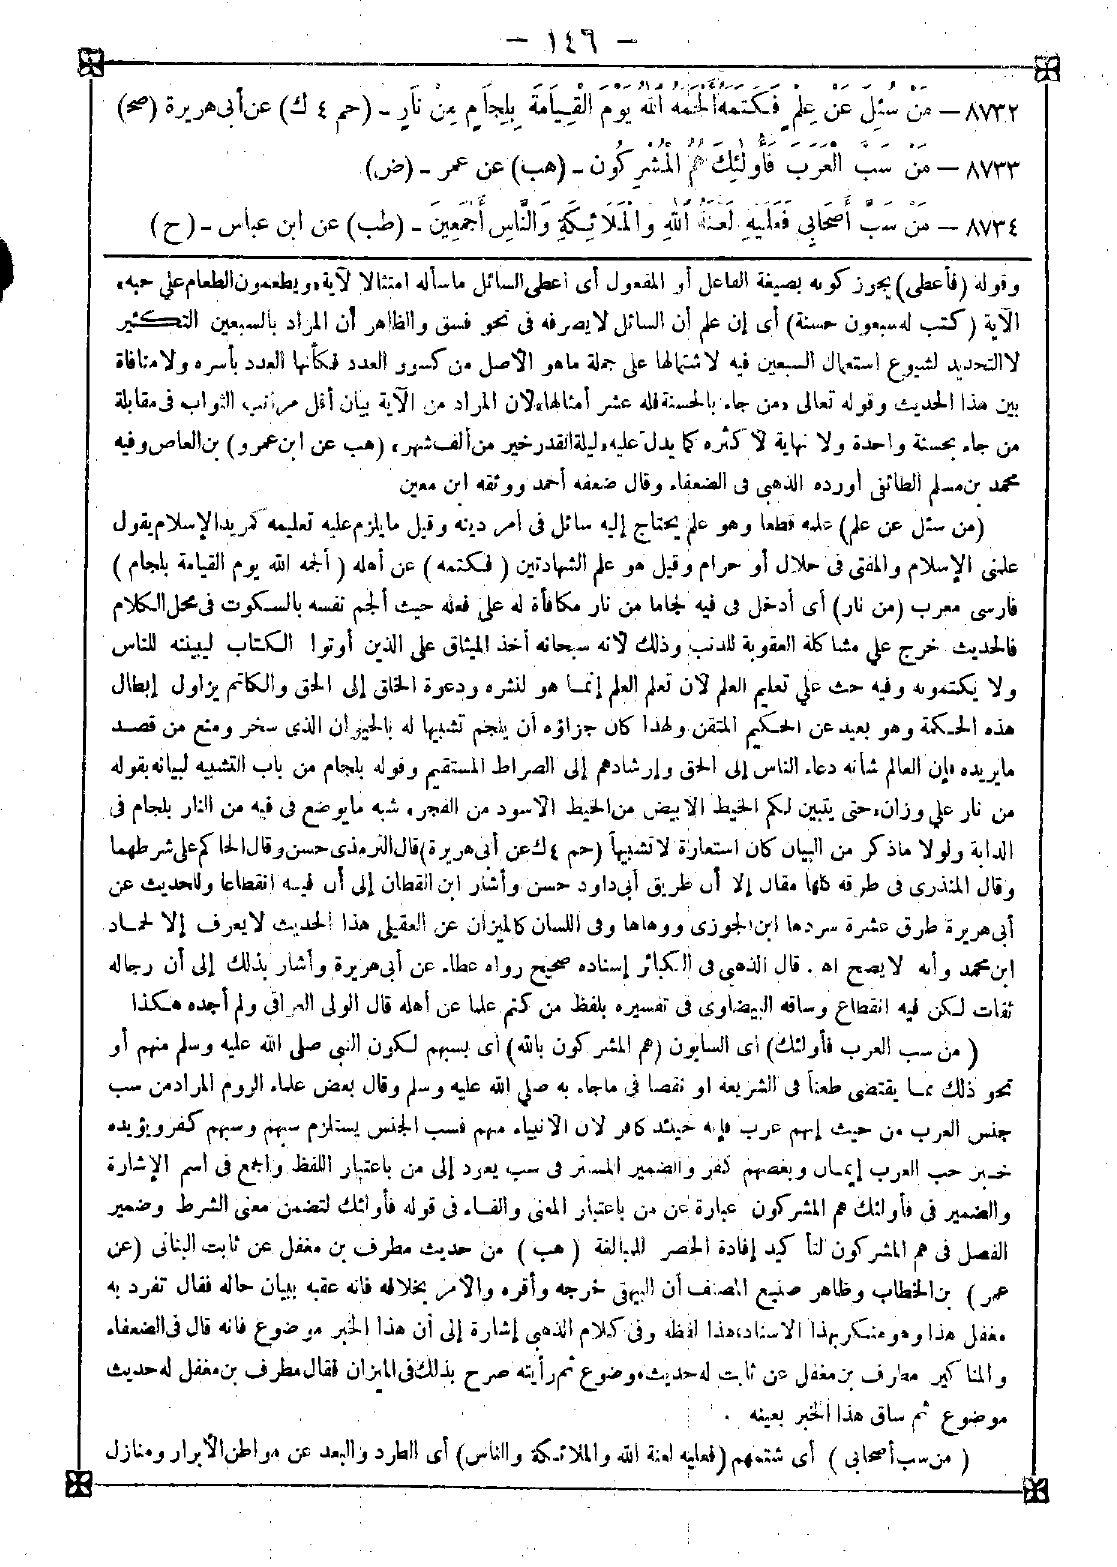 - ١٤٦ -
٨٧٣٢ - مَنْ سُئِلَ عَنْ عِلْمٍ فَكَتَمَهُ أَلْجَمَهُ اللهُ يَوْمَ الْقِيَامَةِ بِلِجَامٍ مِنْ نَارٍ - (حم ٤ ك) عن أبى هريرة (صح)
٨٧٣٣ - مَنْ سَبَّ الْعَرَبَ فَأُولَئِكَ هُمُ الْمُشْرِكُونَ - (هب) عن عمر - (ض)
٨٧٣٤ - مَنْ سَبَّ أَصْحَابِي فَعَلَيْهِ لَعْنَةُ اللهِ وَالْمَلَائِكَةِ وَالنَّاسِ أَجْمَعِينَ - (طب) عن ابن عباس - (ح)
وقوله (فأعطى) يجوز كونه بصيغة الفاعل أو المفعول أى اعطى السائل ماسأله امتثالا لآية «ويطعمون الطعام على حبه»
الآية (كتب له سبعون حسنة) أى إن علم أن السائل لا يصرفه فى نحو فسق والظاهر أن المراد بالسبعين التكثير
لا التحديد لشيوع استعمال السبعين فيه لاشتمالها على جملة ماهو الأصل من كسور العدد فكأنها العدد بأسره ولا منافاة
بين هذا الحديث وقوله تعالى «من جاء بالحسنة فله عشر أمثالها» لأن المراد من الآية بيان أقل مراتب الثواب فى مقابلة
من جاء بحسنة واحدة ولا نهاية لأكثره كما يدل عليه «ليلة القدر خير من ألف شهر» (هب عن ابن عمرو) بن العاص وفيه
محمد بن مسلم الطائفى أورده الذهبى فى الضعفاء وقال ضعفه أحمد ووثقه ابن معين
(من سئل عن علم) علمه قطعا وهو علم يحتاج إليه سائل فى أمر دينه وقيل ما يلزم عليه تعليمه كمريد الإسلام يقول
علمنى الإسلام والمفتى فى حلال أو حرام وقيل هو علم الشهادتين (فكتمه) عن أهله (ألجمه الله يوم القيامة بلجام)
فارسى معرب (من نار) أى أدخل فى فيه لجاما من نار مكافأة له على فعله حيث ألجم نفسه بالسكوت فى محل الكلام
فالحديث خرج على مشاكلة العقوبة للذنب وذلك لأنه سبحانه أخذ الميثاق على الذين أوتوا الكتاب ليبينه للناس
ولا يكتمونه وفيه حث على تعليم العلم لأن تعلم العلم إنما هو لنشره ودعوة الخلق إلى الحق والكاتم يزاول إبطال
هذه الحكمة وهو بعيد عن الحكيم المتقن ولهذا كان جزاؤه أن يلجم تشبيها له بالحيوان الذى سخر ومنع من قصد
مايريده فإن العالم شأنه دعاء الناس إلى الحق وإرشادهم إلى الصراط المستقيم وقوله بلجام من باب التشبيه لبيانه بقوله
من نار على وزان «حتى يتبين لكم الخيط الأبيض من الخيط الأسود من الفجر» شبه مايوضع فى فيه من النار بلجام فى
الدابة ولولا ماذكر من البيان كان استعارة لا تشبيها (حم ٤ ك عن أبى هريرة) قال الترمذى حسن وقال الحاكم على شرطهما
وقال المنذرى فى طرقه كلها مقال إلا أن طريق أبى داود حسن وأشار ابن القطان إلى أن فيه انقطاعا وللحديث عن
أبى هريرة طرق عشرة سردها ابن الجوزى ووهاها وفى اللسان كالميزان عن العقيلى هذا الحديث لا يعرف إلا لحماد
ابن محمد وأنه لا يصح اه . قال الذهبى فى الكبائر إسناده صحيح رواه عطاء عن أبى هريرة وأشار بذلك إلى أن رجاله
ثقات لكن فيه انقطاع وساقه البيضاوى فى تفسيره بلفظ من كتم علما عن أهله قال الولى العراقى ولم أجده هكذا
(من سب العرب فأولئك) أى السابون (هم المشركون بالله) أى بسبهم لكون النبى صلى الله عليه وسلم منهم أو
نحو ذلك مما يقتضى طعنا فى الشريعة او نقصا فى ماجاء به صلى الله عليه وسلم وقال بعض علماء الروم المراد من سب
جنس العرب من حيث إنهم عرب فإنه حينئذ كافر لأن الأنبياء منهم فسب الجنس يستلزم سبهم وسبهم كفر ويؤيده
خبر حب العرب إيمان وبغضهم كفر والضمير المستتر فى سب يعود إلى من باعتبار اللفظ والجمع فى اسم الإشارة
والضمير فى فأولئك هم المشركون عبارة عن من باعتبار المعنى والفاء فى قوله فأولئك لتضمن معنى الشرط وضمير
الفصل فى هم المشركون لتأكيد إفادة الحصر للمبالغة (هب) من حديث مطرف بن مغفل عن ثابت البنانى (عن
عمر) بن الخطاب وظاهر صنيع المصنف أن البيهقى خرجه وأقره والأمر بخلافه فانه عقبه ببيان حاله فقال تفرد به
مغفل هذا وهو منكر بهذا الاسناد، هذا لفظه وفى كلام الذهبى إشارة إلى أن هذا الخبر موضوع فانه قال فى الضعفاء
والمناكير مطرف بن مغفل عن ثابت له حديث موضوع ثم رأيته صرح بذلك فى الميزان فقال مطرف بن مغفل له حديث
موضوع ثم ساق هذا الخبر بعينه .
(من سب أصحابى) أى شتمهم (فعليه لعنة الله والملائكة والناس) أى الطرد والبعد عن مواطن الأبرار ومنازل